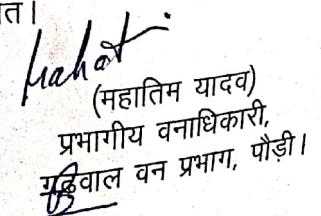 त।
(महातिम यादव)
प्रभागीय वनाधिकारी,
गढ़वाल वन प्रभाग, पौड़ी।